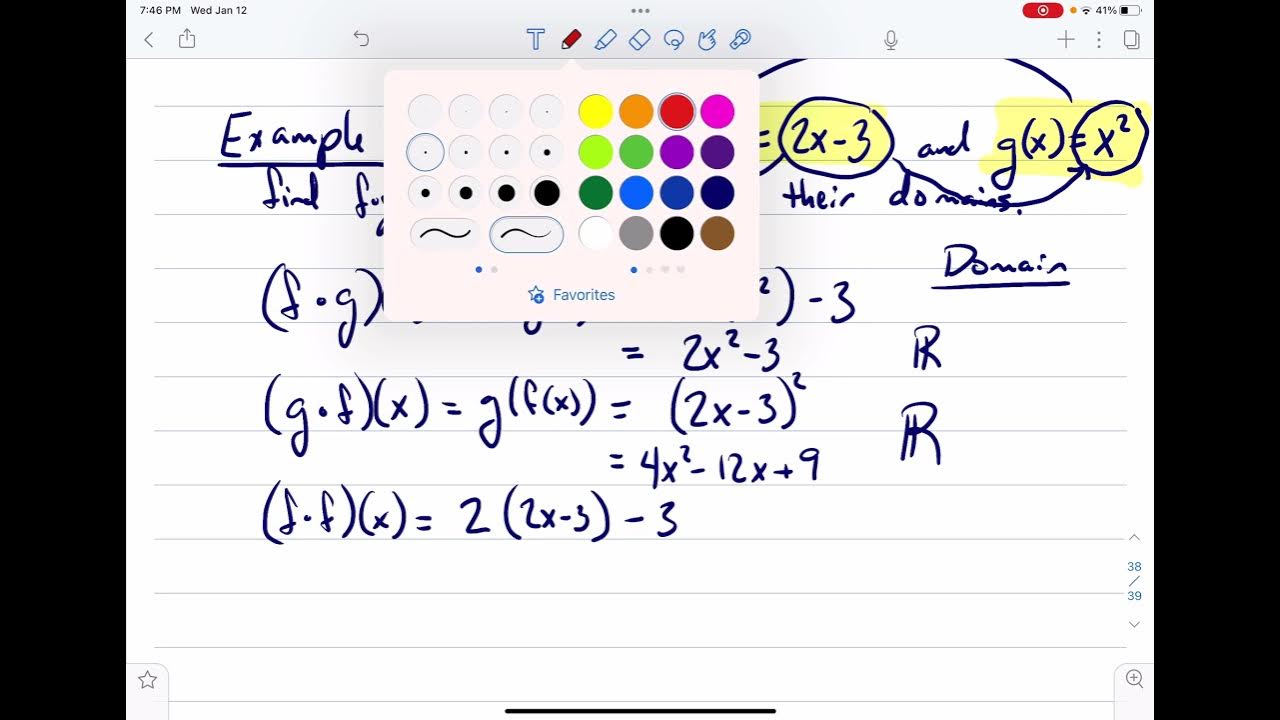 7:46 PM Wed Jan 12
41%
T
Example = 2x-3 and g(x) = x²
find their domains.
Favorites
Domain
(f∘g) ²) - 3
= 2x² - 3 ℝ
(g∘f)(x) = g(f(x)) = (2x-3)² ℝ
= 4x² - 12x + 9
(f∘f)(x) = 2(2x-3) - 3
38
/
39